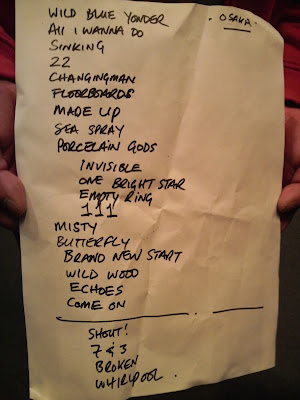 WILD BLUE YONDER . OSAKA .
All I WANNA DO
SINKING
22
CHANGINGMAN
FLOORBOARDS
MADE UP
SEA SPRAY
PORCELAIN GODS
INVISIBLE
ONE BRIGHT STAR
EMPTY RING
111
MISTY
BUTTERFLY
BRAND NEW START
WILD WOOD
ECHOES
COME ON
SHOUT!
7 & 3
BROKEN
WHIRLPOOL .